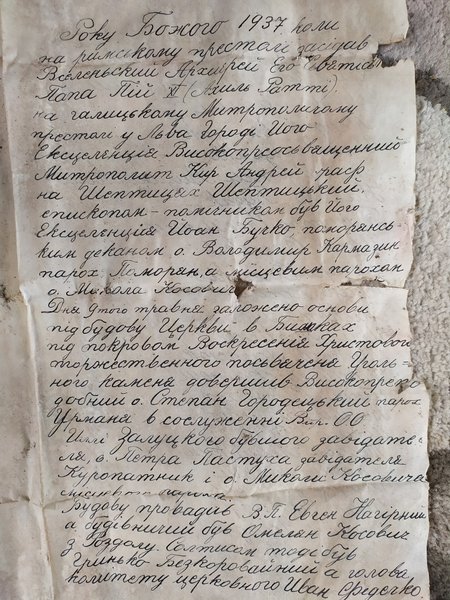 Року Божого 1937 коли
на римському престолі засідав
Вселенський Архиєрей Его Святість
Папа Пій XI (Ахиль Ратті)
на галицькому Митрополичому
престолі у Льва Городі Його
Ексцеленція Високопреосьвященний
Митрополит Кир Андрей граф
на Шептицях Шептицький,
епископом-помічником був Його
Ексцеленція Йоан Бучко, поморянсь-
ким деканом о. Володимир Кармазин
парох Поморян, а місцевим парохом
о. Микола Косович
Дня 9того травня заложено основи
під будову Церкви в Бишках
під покровом Воскресення Христового
торжественного посьвячення Уголь-
ного каменя довершив Високопрепо
добний о. Степан Городецький парох
Урмана в сослуженні Вип. ОО
Іллі Залуцкого бувшого завідате-
ля, о. Петра Пастуха завідателя
Куропатник і о. Миколи Косовича
місцевого пароха
Будову провадив В.П. Евген Нагірний
а будівничий був Омелян Косович
з Роздолу. Солтисом тоді був
Гринько Безкоровайний а голова
комітету церковного Іван Федечко.